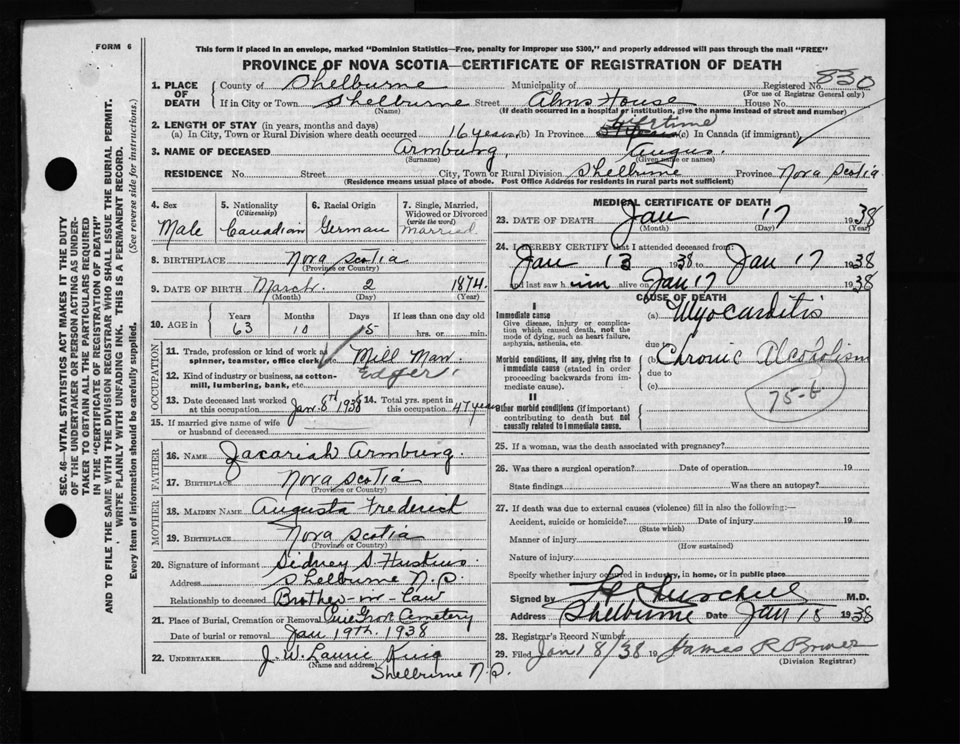 FORM 6
This form if placed in an envelope, marked "Dominion Statistics—Free, penalty for improper use $300," and properly addressed will pass through the mail "FREE"
PROVINCE OF NOVA SCOTIA—CERTIFICATE OF REGISTRATION OF DEATH
SEC. 46—VITAL STATISTICS ACT MAKES IT THE DUTY
OF THE UNDERTAKER OR PERSON ACTING AS UNDER-
TAKER TO OBTAIN ALL THE PARTICULARS REQUIRED
IN THE "CERTIFICATE OF REGISTRATION OF DEATH"
AND TO FILE THE SAME WITH THE DIVISION REGISTRAR WHO SHALL ISSUE THE BURIAL PERMIT.
WRITE PLAINLY WITH UNFADING INK. THIS IS A PERMANENT RECORD.
Every item of information should be carefully supplied. (See reverse side for instructions.)
1. PLACE OF DEATH
County of Shelburne Municipality of Registered No. 830
(For use of Registrar General only)
If in City or Town Shelburne Street Alms House House No.
(Name) (If death occurred in a hospital or institution, give the name instead of street and number)
2. LENGTH OF STAY (in years, months and days) lifetime
(a) In City, Town or Rural Division where death occurred 16 years (b) In Province (c) In Canada (if immigrant)
3. NAME OF DECEASED Armburg, Angus.
(Surname) (Given name or names)
RESIDENCE No. Street City, Town or Rural Division Shelburne Province Nova Scotia
(Residence means usual place of abode. Post Office Address for residents in rural parts not sufficient)
4. Sex Male
5. Nationality (Citizenship) Canadian
6. Racial Origin German
7. Single, Married, Widowed or Divorced (write the word) Married
8. BIRTHPLACE Nova Scotia
(Province or Country)
9. DATE OF BIRTH March 2 1874.
(Month) (Day) (Year)
10. AGE in Years Months Days If less than one day old
63 10 15 hrs. or min.
OCCUPATION
11. Trade, profession or kind of work as spinner, teamster, office clerk, etc. Mill Man
12. Kind of industry or business, as cotton-mill, lumbering, bank, etc. Edger
13. Date deceased last worked at this occupation Jan. 8th 1938 14. Total yrs. spent in this occupation 47 years
15. If married give name of wife or husband of deceased
FATHER
16. NAME Zacariah Armburg.
17. BIRTHPLACE Nova Scotia
(Province or Country)
MOTHER
18. MAIDEN NAME Augusta Frederick
19. BIRTHPLACE Nova Scotia
(Province or Country)
20. Signature of informant Sidney S. Huskins
Address Shelburne N.S.
Relationship to deceased Brother-in-law
21. Place of Burial, Cremation or Removal Pine Grove Cemetery
Date of burial or removal Jan 19th. 1938
22. UNDERTAKER J. W. Laurie King
(Name and address) Shelburne N.S.
MEDICAL CERTIFICATE OF DEATH
23. DATE OF DEATH Jan 17 1938
(Month) (Day) (Year)
24. I HEREBY CERTIFY that I attended deceased from:
Jan 13 1938 to Jan 17 1938
and last saw him alive on Jan 17 1938
CAUSE OF DEATH
I
Immediate cause
Give disease, injury or complication which caused death, not the mode of dying, such as heart failure, asphyxia, asthenia, etc.
(a) Myocarditis
due to
Morbid conditions, if any, giving rise to immediate cause (stated in order proceeding backwards from immediate cause).
(b) Chronic Alcoholism
due to
(c)
75-b
II
Other morbid conditions (if important) contributing to death but not causally related to immediate cause.
25. If a woman, was the death associated with pregnancy?
26. Was there a surgical operation? Date of operation 19
State findings Was there an autopsy?
27. If death was due to external causes (violence) fill in also the following:—
Accident, suicide or homicide? Date of injury 19
(State which)
Manner of injury
(How sustained)
Nature of injury
Specify whether injury occurred in industry, in home, or in public place
Signed by M.D.
Address Shelburne Date Jan 18 1938
28. Registrar's Record Number
29. Filed Jan 18/38 19 James R Bower
(Division Registrar)